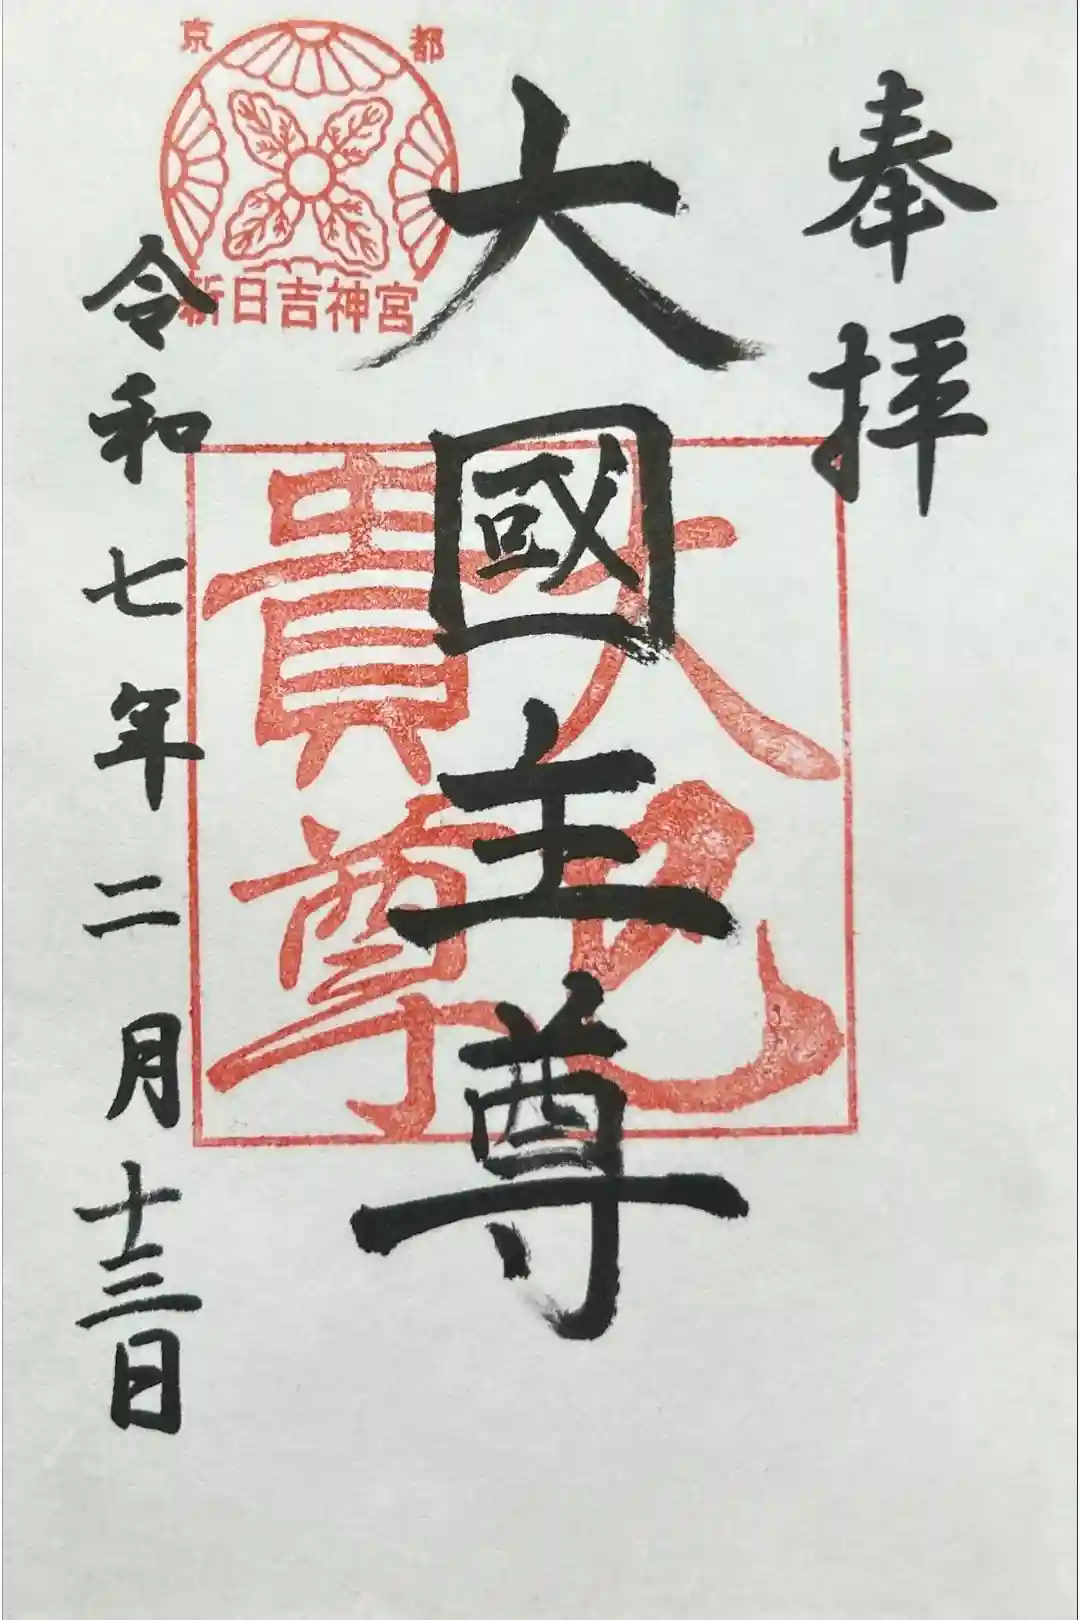 奉拝
大國主尊
大己貴尊
京都
新日吉神宮
令和七年二月十三日